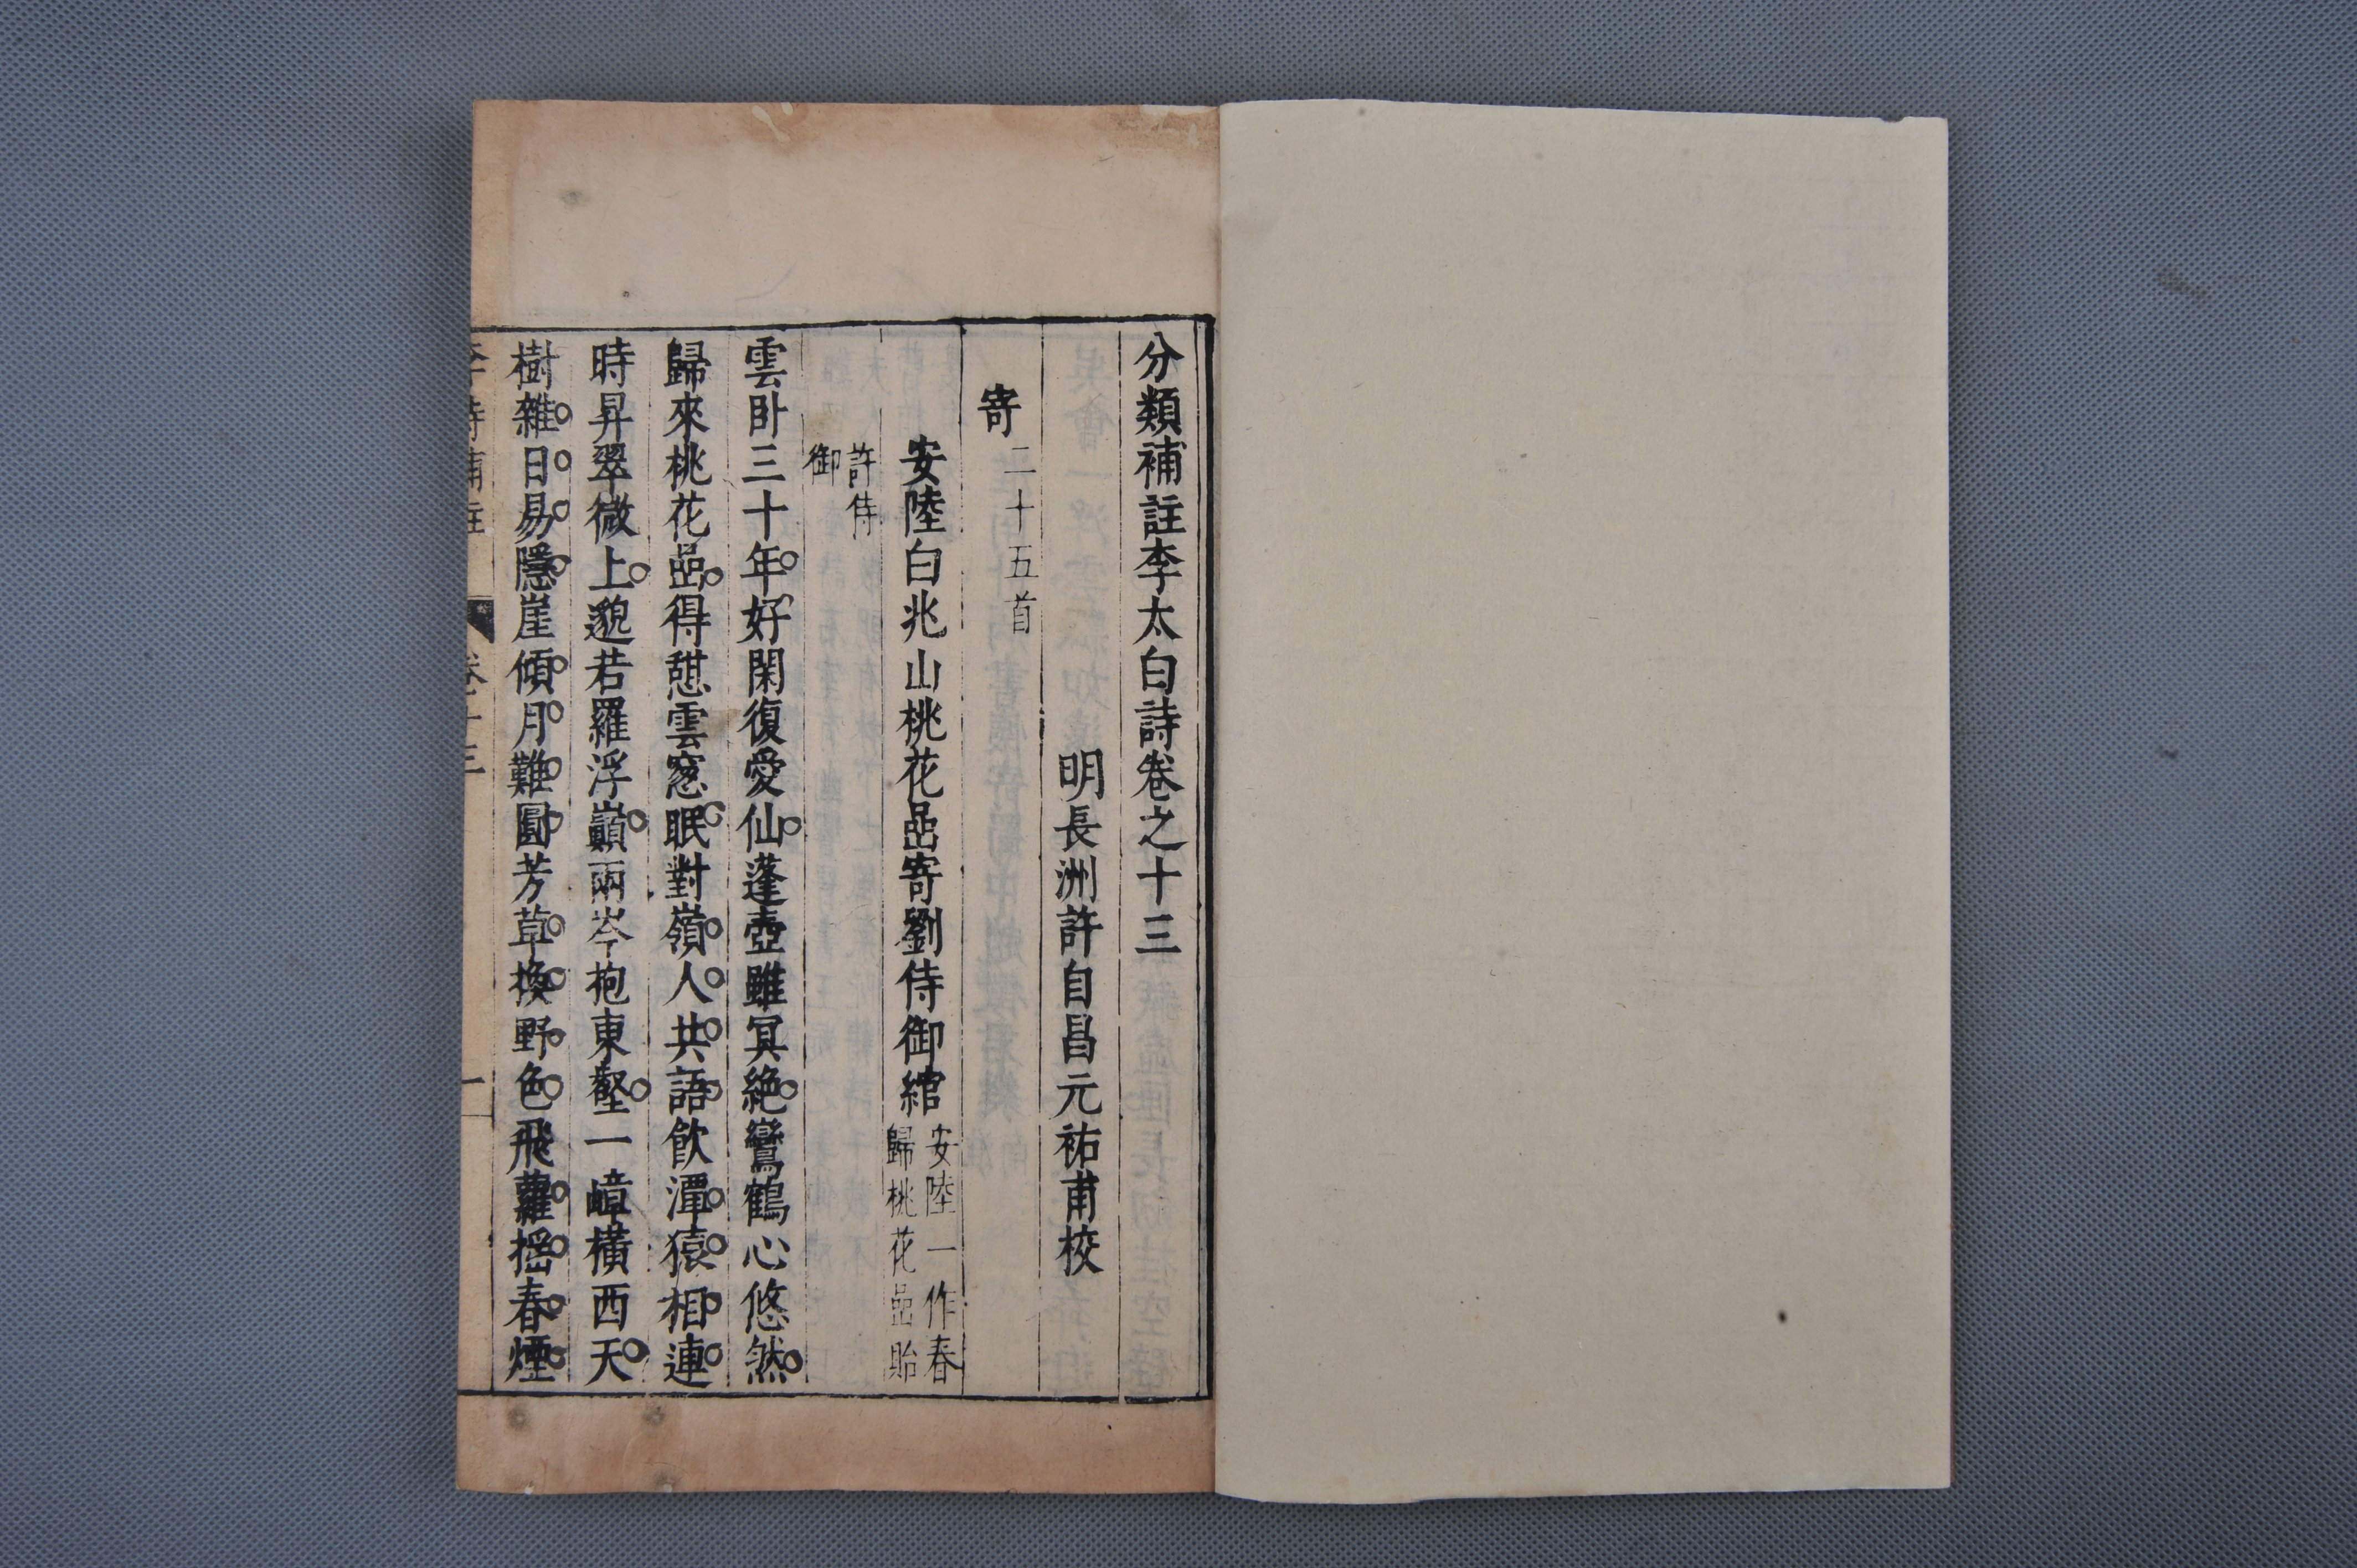 分類補註李太白詩卷之十三
明長洲許自昌元祐甫校
寄二十五首
安陸白兆山桃花嵒寄劉侍御綰安陸一作春
歸桃花嵒貽
許侍
御
雲卧三十年好閑復愛仙蓬壺雖冥絶鸞鶴心悠然
歸來桃花嵒得憇雲窓眠對嶺人共語飲潭猿相連
時昇翠微上邈若羅浮巔兩岑抱東壑一嶂橫西天
樹雜日易隱崖傾月難圓芳草換野色飛蘿揺春煙